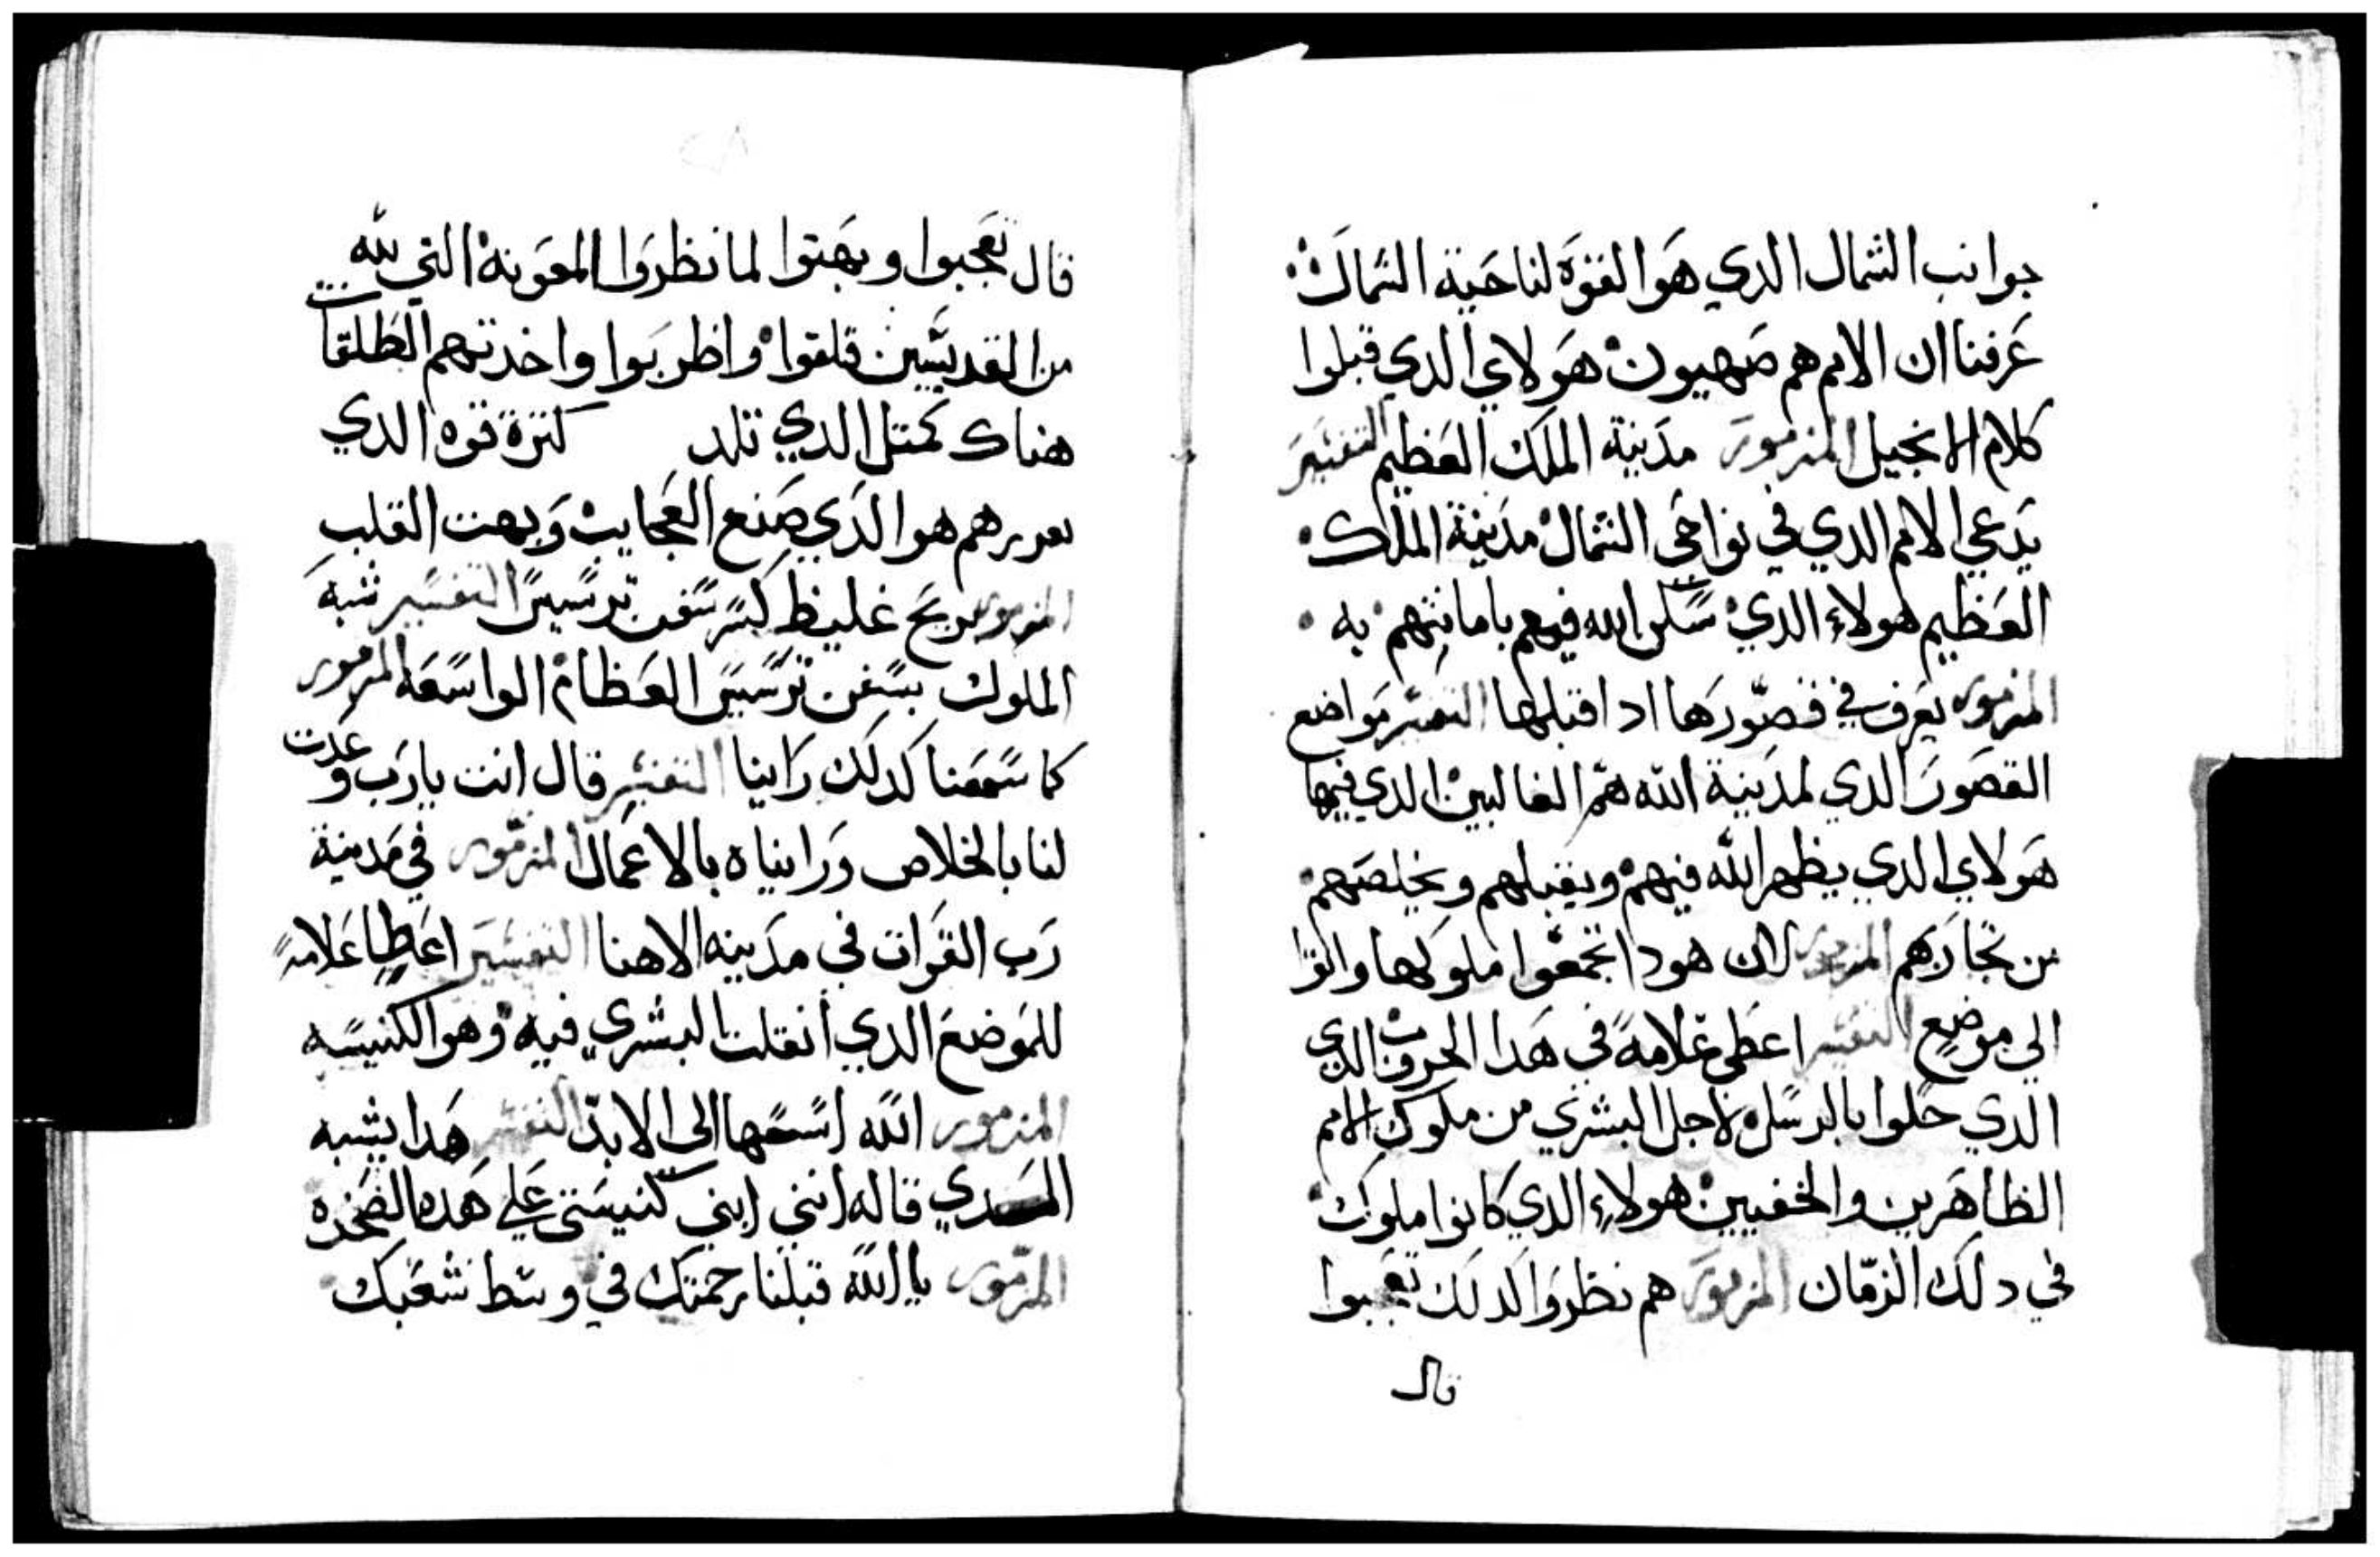 جوانب الشمال الدي هو القوة لناحية الشمال
عرفنا ان الامم هم صهيون هولاي الدي قبلوا
كلام الانجيل المزمور مدينة الملك العظيم التفسير
يدعي الامم الدي في نواحي الشمال مدينة الملك
العظيم هولاء الدي سكن الله فيهم بامانتهم به
المزمور يعرف في قصورها اد اقبلها التفسير مواضع
القصور الدي لمدينة الله هم الغالبين الدي فيها
هولاي الدي يظهر الله فيهم ويقبلهم ويخلصهم
من تجاربهم المزمور لان هودا تجمعوا ملوكها واتوا
الي موضع التفسير اعطي علامة في هدا الحروب الدي
الدي حلوا بالرسل لاجل البشري من ملوك الامم
الظاهرين والخفيين هولاء الدي كانوا ملوك
في دلك الزمان المزمور هم نظروا كدلك تعجبوا
قال
قال تعجبوا وبهتوا لما نظروا المعونة التي لله
من القديسين قلقوا واظربوا واخدتهم الطلقات
هناك كمتل الدي تلد كترة قوه الدي
هو الدي صنع العجايب وبهت القلب
المزمور بريح غليظ كسر سفن ترسيس التفسير شبه
الملوك بسفن ترسيس العظام الواسعة المزمور
كما سمعنا كدلك راينا التفسير قال انت يارب وعدت
لنا بالخلاص ورايناه بالاعمال المزمور في مدينة
رب القوات في مدينه الاهنا التفسير اعطا علامة
للموضع الدي انقلت البشري فيه وهو الكنيسه
المزمور الله اسسها الى الابد التفسير هدا يشبه
قاله انني ابني كنيستي علي هده الصخره
المزمور يا الله قبلنا رحمتك في وسط شعبك